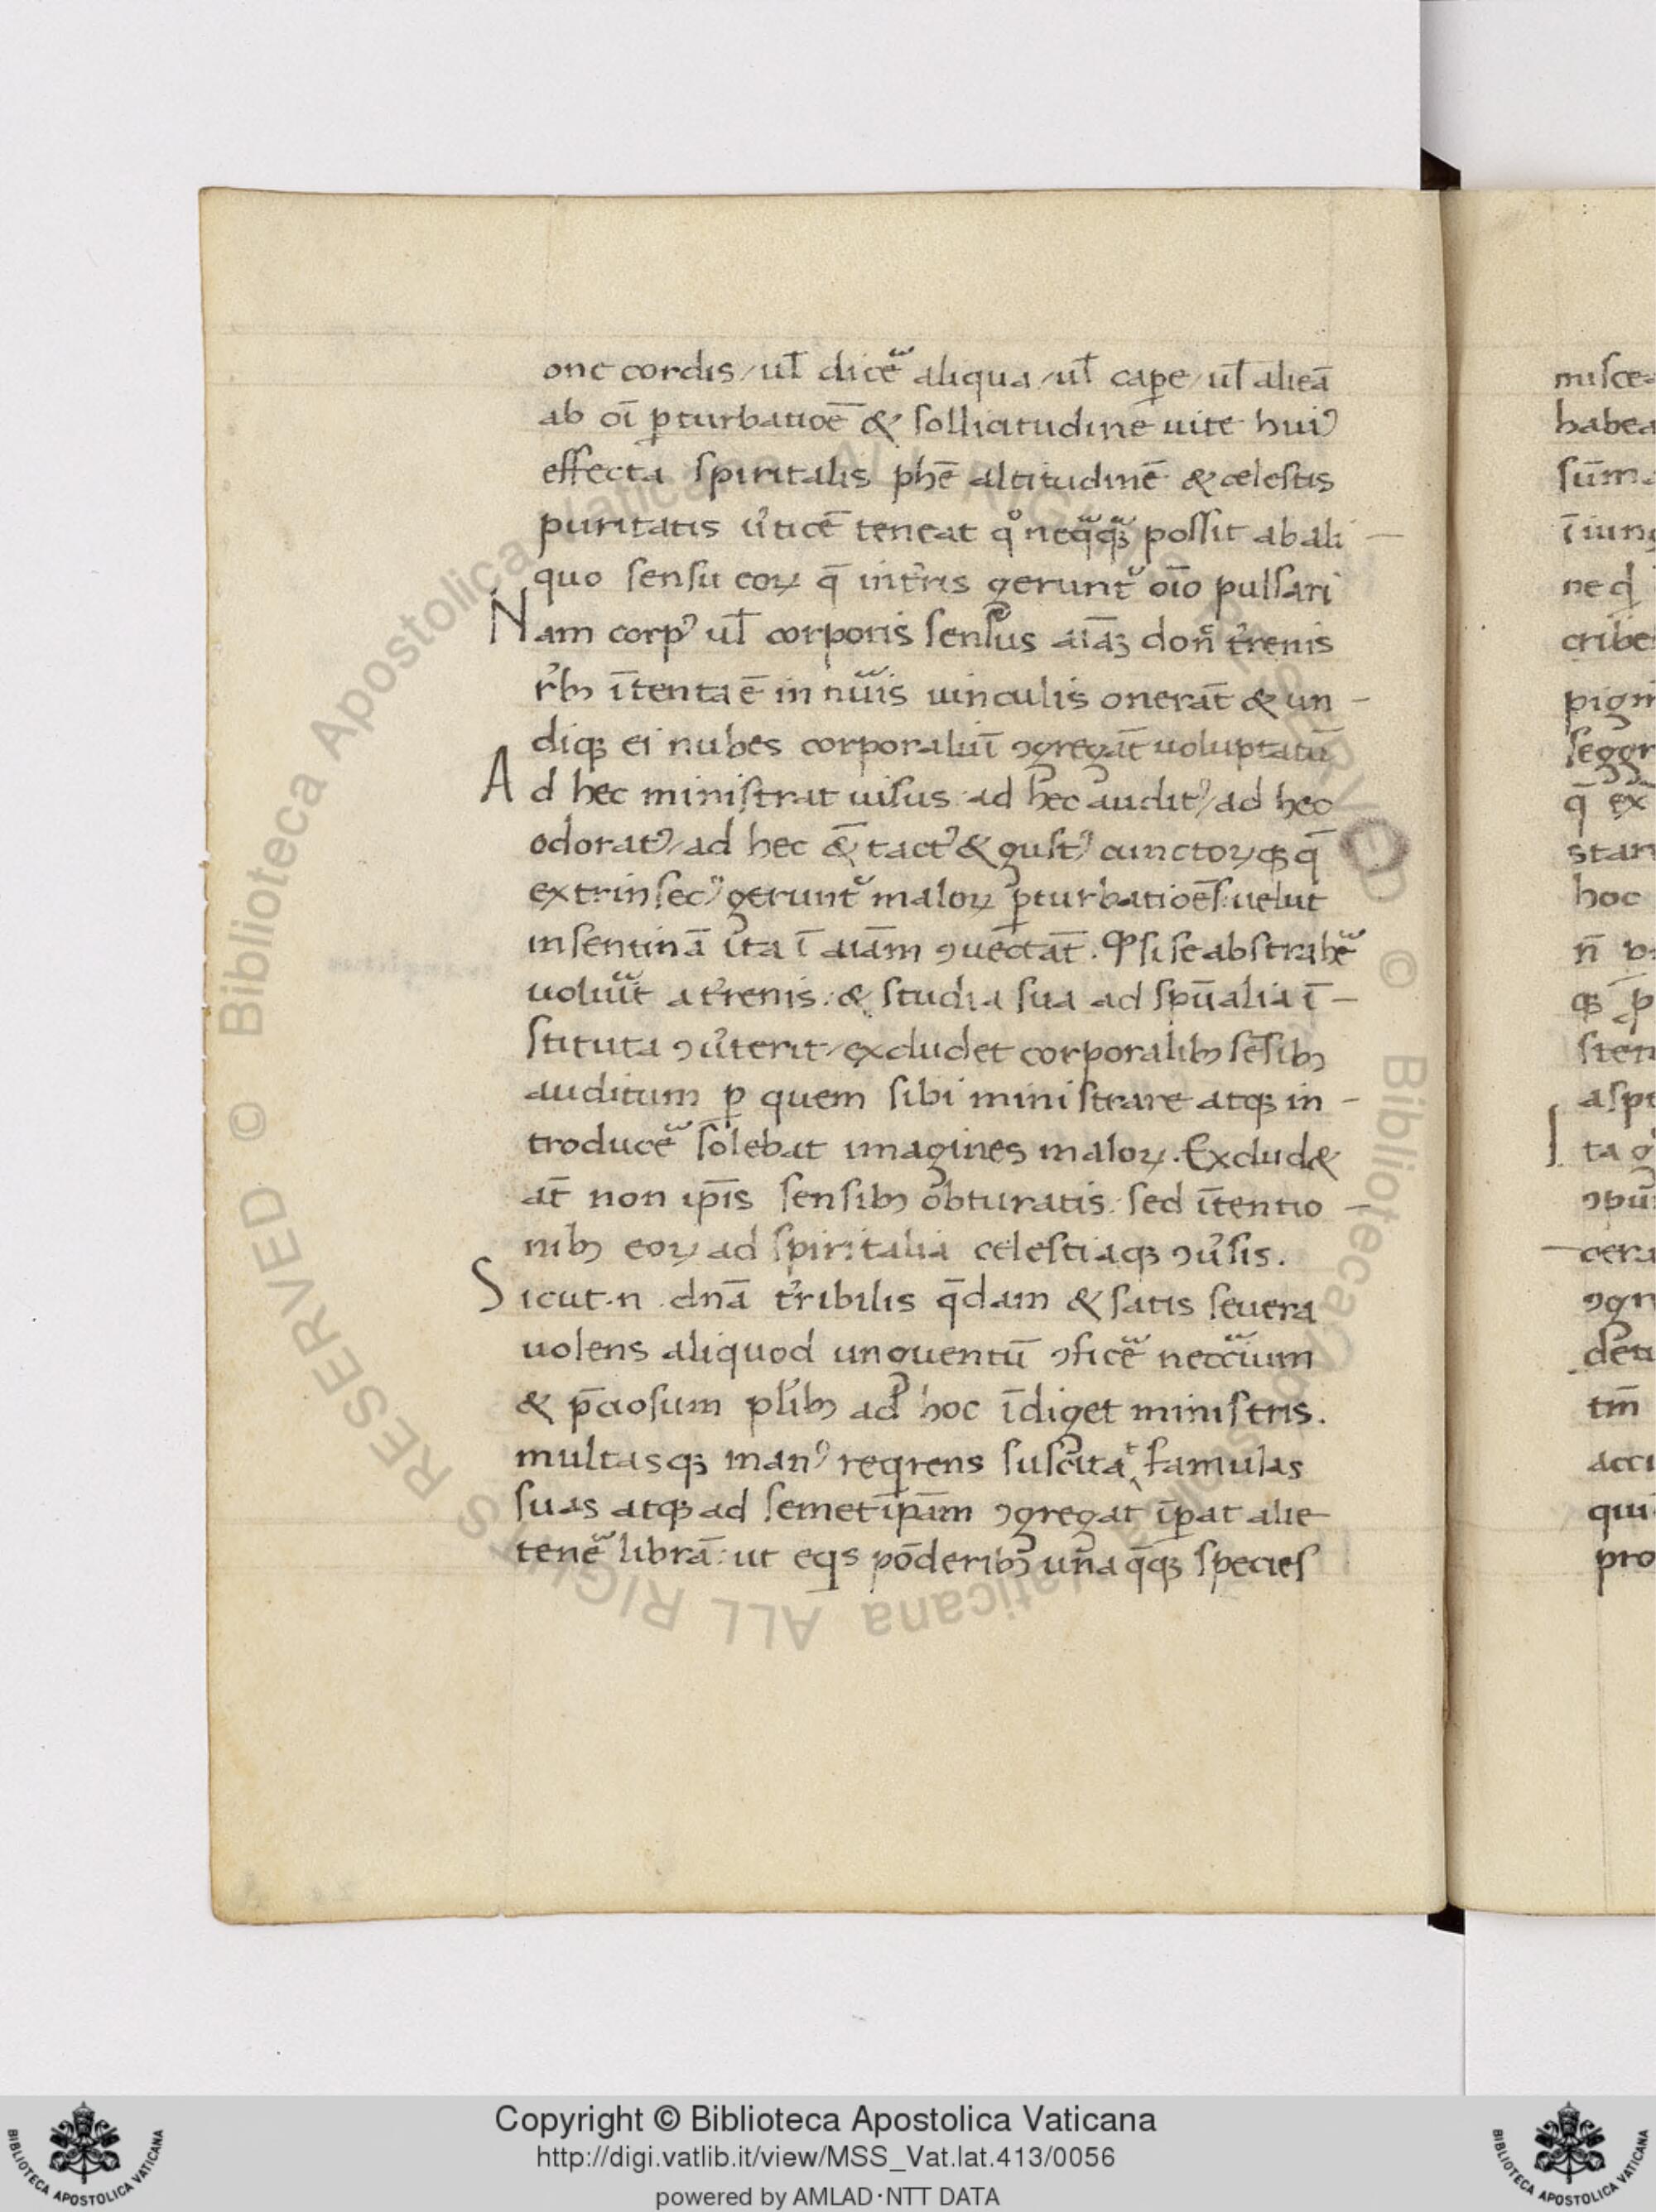 one cordis / ul̄ dicẽ aliqua / ul̄ cap̱e / ul̄ alieā
ab oī ꝑturbatiōe & sollicitudine uite huiꝰ
effecta spiritalis phē altitudinē & celestis
puritatis u̓ticē teneat qͦ neq̃q̃ꝫ possit ab ali
quo sensu eoꝝ q̄ int̓ris gerunt᷑ oīo pulsari
Nam corpꝰ ul̄ corporis sensus aīāꝫ donͨ t̓renis
r̓bꝫ ītenta ē innũis uinculis onerāt & un
diqꝫ ei nubes corporaliū ꝯgregāt uoluptatū
Ad hec ministrat uisus ad hec auditꝰ / ad hec
odoratꝰ / ad hec &̄ tactꝰ & gustꝰ cunctoꝝqꝫ q̄
extrinsecꝰ gerunt᷑ maloꝝ ꝑturbatiōes uelut
in sentinā ita ī aīam ꝯuectāt. Qđ si se abstrahẽ
uolũit a t̓renis. & studia sua ad spūalia ī
stituta ꝯu̓terit / excludet corporalibꝫ sēsibꝫ
auditum ꝑ quem sibi ministrare atqꝫ in
troducẽ solebat imagines maloꝝ. Exclud&
at̄ non ip̄is sensibꝫ obturatis. sed ītentio
nibꝫ eoꝝ ad spiritalia celestiaqꝫ ꝯu̓sis.
Sicut .n. dn̄a t̓ribilis q̄dam & satis seuera
uolens aliquod unguentū ꝯficẽ neccãium
& p̄ciosum pl̓ibꝫ ad hoc īdiget ministris.
multasqꝫ manꝰ reqͥrens suscitat famulas
suas atqꝫ ad semetip̄am ꝯgregat īꝑat alie
tenẽ librā: ut eqͥs pōderibꝫ una q̄qꝫ species
Copyright © Biblioteca Apostolica Vaticana
http://digi.vatlib.it/view/MSS_Vat.lat.413/0056
powered by AMLAD·NTT DATA